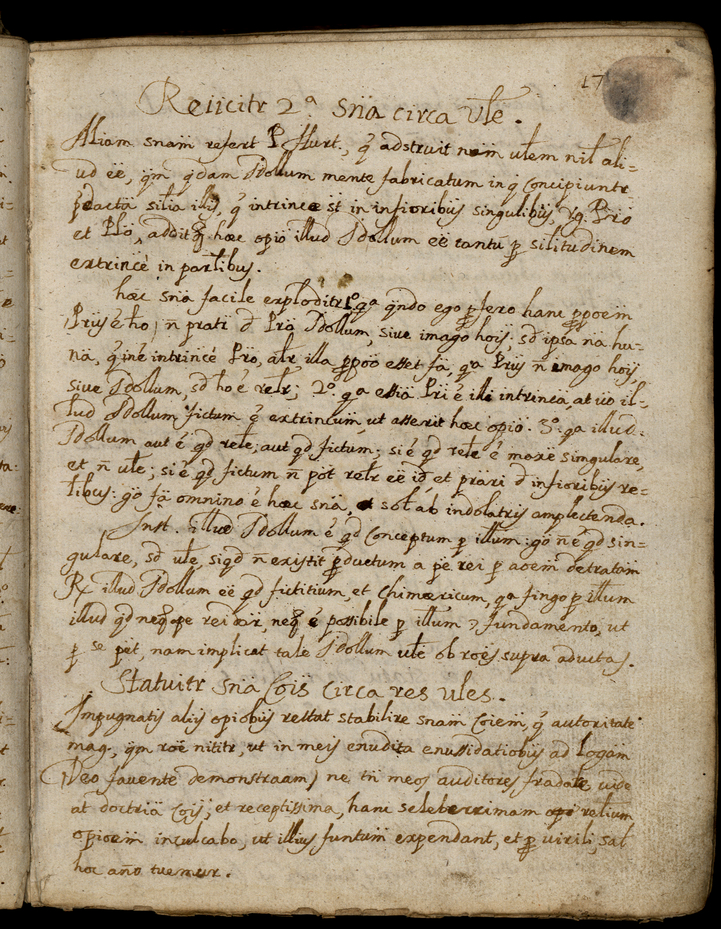 17
Reiicitr 2ª sñia circa vłe.
Aliam snam refert P. Hurt., q̃ adstruit nrm ułem nil ali=
ud eẽ, qm̃ qdam Idollum mente fabricatum in q̃ concipiuntr
silia illis, q̃ intrince st in inferioribus singulibus, vg. Pro
et Plo, addit hæc opio illud Idollum eẽ tantũ p silitudinem
extrincè in partibus.
hæc sñia facile exploditr 1º qª qndo ego pfero hanc ppoem
Prus ẽ ho, ñ pratr d Pro Idollum, siue imago hois, sd ipsa na hu=
na, q̃ inẽ intrincè Pro, alr illa ppoo esset fã, qª Prus ñ imago hois,
siue Idollum, sd ho ẽ relr; 2º. qª essiã Pri ẽ illi intrinca, at uo il=
lud Idollum fictum ẽ extrincum, ut asserit hæc opio. 3º: qª illud
Idollum aut ẽ qd rele, aut qd fictum; si ẽ qd rele ẽ maxe singulare,
et ñ ułe; si ẽ qd fictum ñ pot relr eẽ id, et prari d inferioribus re=
libus: gõ fã omnino ẽ hæc sñia, et sol ab indolatris amplectenda.
Inst. illud Idollum ẽ qd conceptum p illum: gõ ñ ẽ qd sin=
gulare, sd ułe, siqd ñ existit pductum a pẽ rei p aoem detratam
Rx illud Idollum eẽ qd fictitium, et chimæricum, qª fingo p illum
illud qd neq̃ a pe rei datr, neq̃ ẽ possibile p illum fundamento, ut
p se pẽt, nam implicat tale Idollum ułe ob roes supra aductas.
Statuitr sñia Cõis circa res ules.
Impugnatis aliis opiobus restat stabilire snam Coiem, q̃ autoritate
mag., qm roẽ nititr, ut in meis enudita enussidatiobus ad Logam
(Deo fauente demonstraam) ne tñ meos auditores fradate, uide
at doctriã Cois, et receptissima, hanc seleberrimam relium
opioem inculcabo, ut illius funtum expendant, et p uirili, sal
hoc año tuemur.